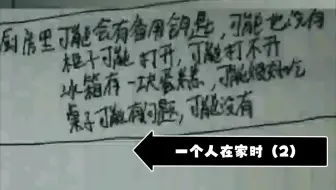 厨房里可能会有备用钥匙，可能也没有
柜子可能打开，可能打不开
冰箱有一块蛋糕，可能很好吃
桌子可能有问题，可能没有
一个人在家时（2）